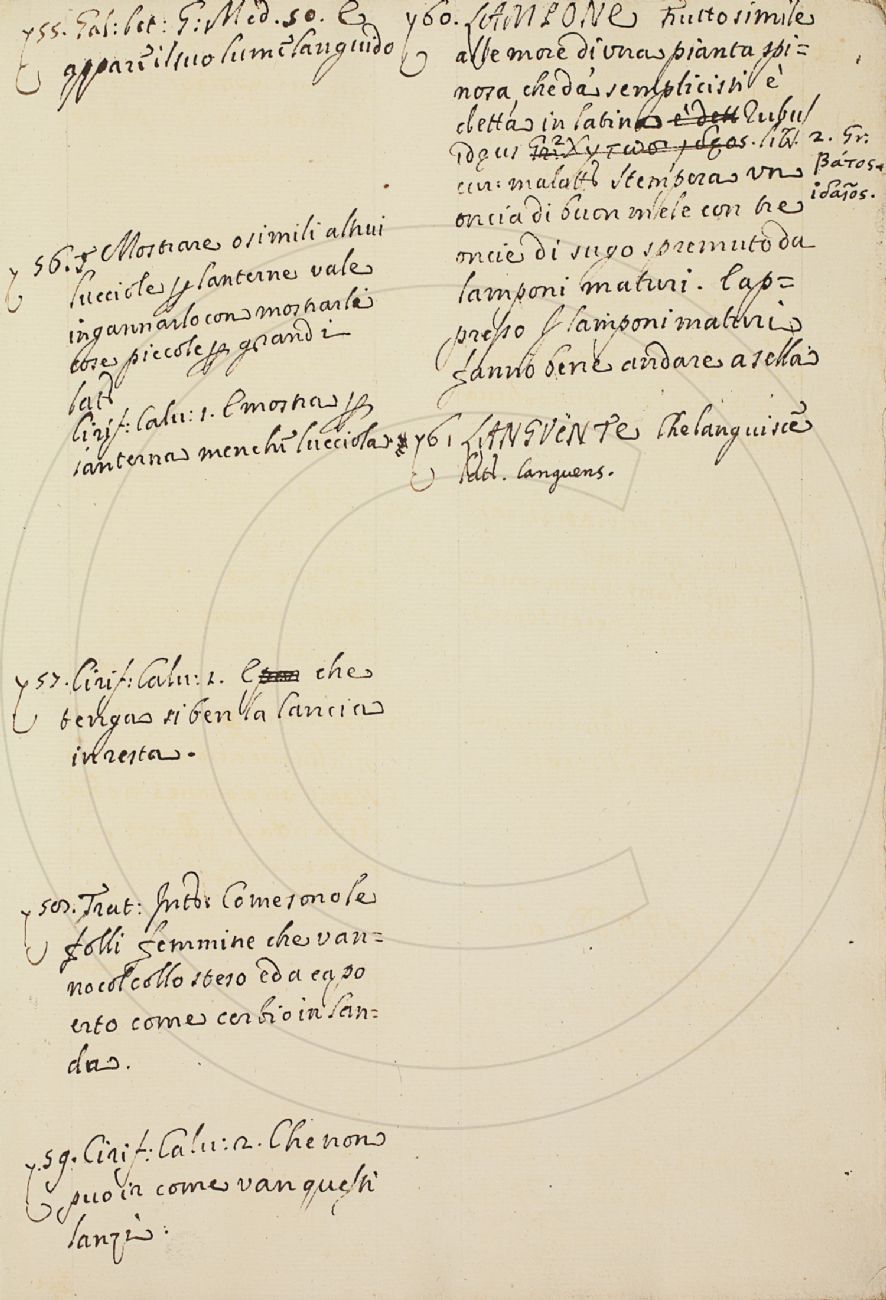 55. Gal: let: G: Med. 50. E
appare il suo lume languido
56. Mostrare o simili altrui
lucciole lanterne vale
ingannarlo con mostrarli
cose piccole grandi
lat
Cirif: Calu: 1. E mostra
lanterna men che lucciola
57. Cirif: Calu: 1. E che
tenga si ben la lancia
in resta.
58. Trat: Come sono le
folli femmine che van=
no col collo steso ed a
erto come cerbio in lan=
da.
59. Cirif: Calu: 2. Che non
puo ir come van questi
lanzi:
60. LAMPONE Frutto simile
alle more di vna pianta spi=
nosa, che dà semplicisti è
detta in latino Rubus
Idæus
cur: malatt Stempera vn
oncia di buon mele con tre
oncie di sugo spremuto da
lamponi maturi. E ap=
presso lamponi maturi
fanno bene andare a sella
2. Gr:
βατος
ιδαῖος.
61. LANGVENTE Che languisce
lat. languens.